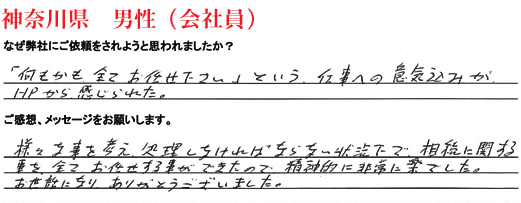 神奈川県 男性（会社員）
なぜ弊社にご依頼をされようと思われましたか？
「何もかも全てお任せ下さい」という、仕事への意気込みが、
HPから感じられた。
ご感想、メッセージをお願いします。
様々な事を考え、処理しなければならない状況下で、相続に関する
事を、全てお任せする事ができたので、精神的に非常に楽でした。
お世話になり、ありがとうございました。